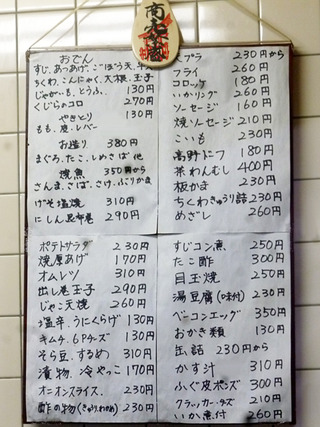 商売繁盛
おでん
すじ、あつあげ、ごぼう天、牛
ちくわ、こんにゃく、大根、玉子
じゃがいも、とうふ、 130円
くじらのコロ 270円
やきとり 130円
もも、皮、レバー
お造り 380円
まぐろ、たこ、しめさば 他
焼魚 350円から
さんま、さば、さけ、ぶりかま
げそ塩焼 310円
にしん昆布巻 290円
天プラ 230円から
フライ 260円
コロッケ 180円
いかリング 260円
ソーセージ 160円
焼ソーセージ 210円
こいも 230円
高野ドーフ 180円
茶わんむし 400円
板かす 230円
ちくわきゅうり詰 230円
めざし 260円
ポテトサラダ 230円
焼厚あげ 170円
オムレツ 310円
出し巻玉子 290円
じゃこ天焼 260円
塩辛、うにくらげ 130円
キムチ、6Pチーズ 130円
そら豆、するめ 310円
漬物、冷やっこ 170円
オニオンスライス 230円
酢の物(きゅうり、わかめ) 230円
すじコン煮 250円
たこ酢 300円
目玉焼 250円
湯豆腐(味付) 230円
ベーコンエッグ 350円
おかき類 130円
缶詰 230円から
かす汁 310円
ふぐ皮ポンズ 300円
クラッカーチーズ 210円
いか煮付 260円